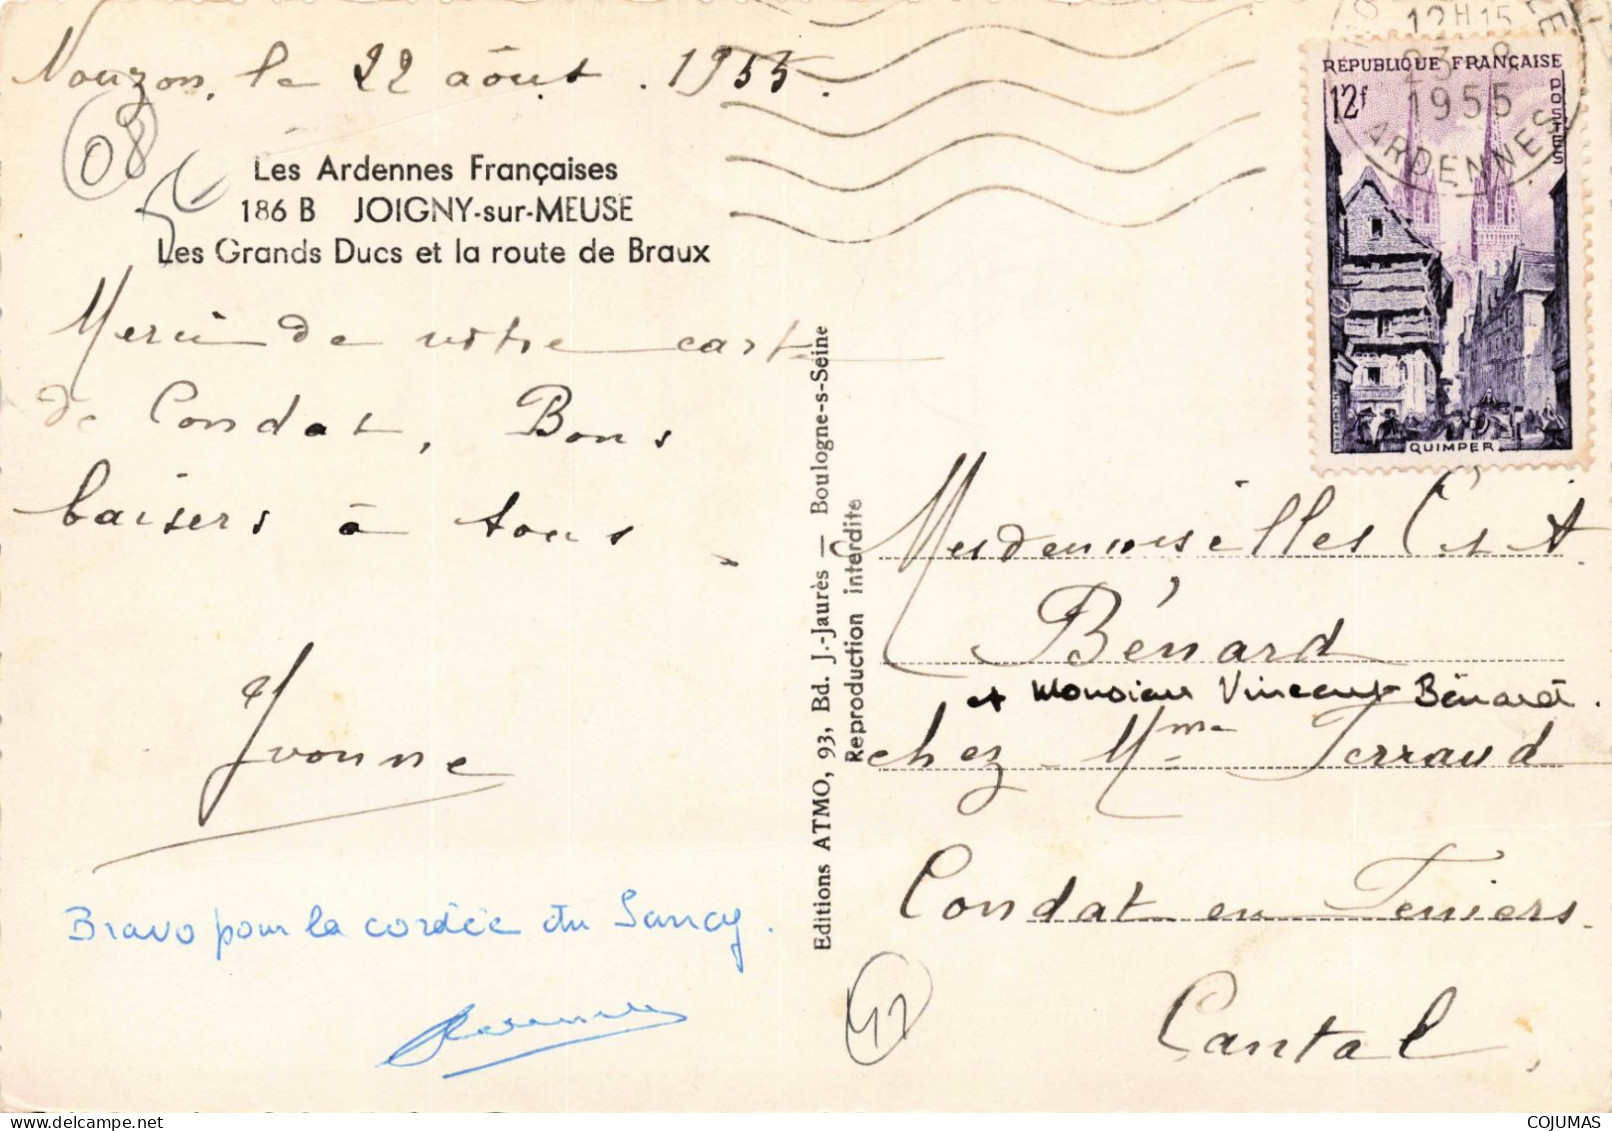 Nouzon, le 22 aôut. 1955.
08
Les Ardennes Françaises
186 B JOIGNY-sur-MEUSE
Les Grands Ducs et la route de Braux
Merci de votre carte
de Condat, Bons
baisers à tous.
Yvonne
Bravo pour la cordée du Sancy.
Editions ATMO, 93, Bd. J.-Jaurès — Boulogne-s-Seine
Reproduction interdite
12H15
23-8
1955
ARDENNES
RÉPUBLIQUE FRANÇAISE
12f
POSTES
QUIMPER
Mesdemoiselles C. et A
Bénard
et Monsieur Vincent Bénard.
chez Mme Terraud
Condat en Feniers.
Cantal
COJUMAS